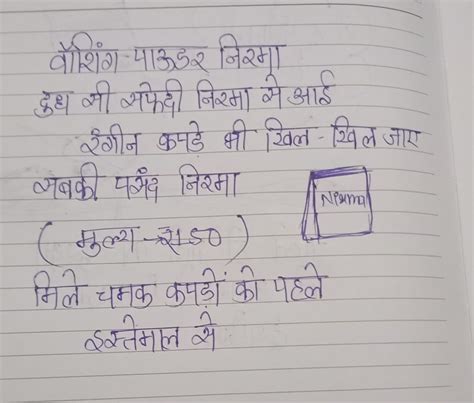 वॉशिंग पाऊडर निरमा
दुध सी सफेदी निरमा से आई
रंगीन कपडे भी खिल-खिल जाए
सबकी पसंद निरमा
Nirma
(मुल्य → रु 50)
मिले चमक कपड़ों को पहले
इस्तेमाल से